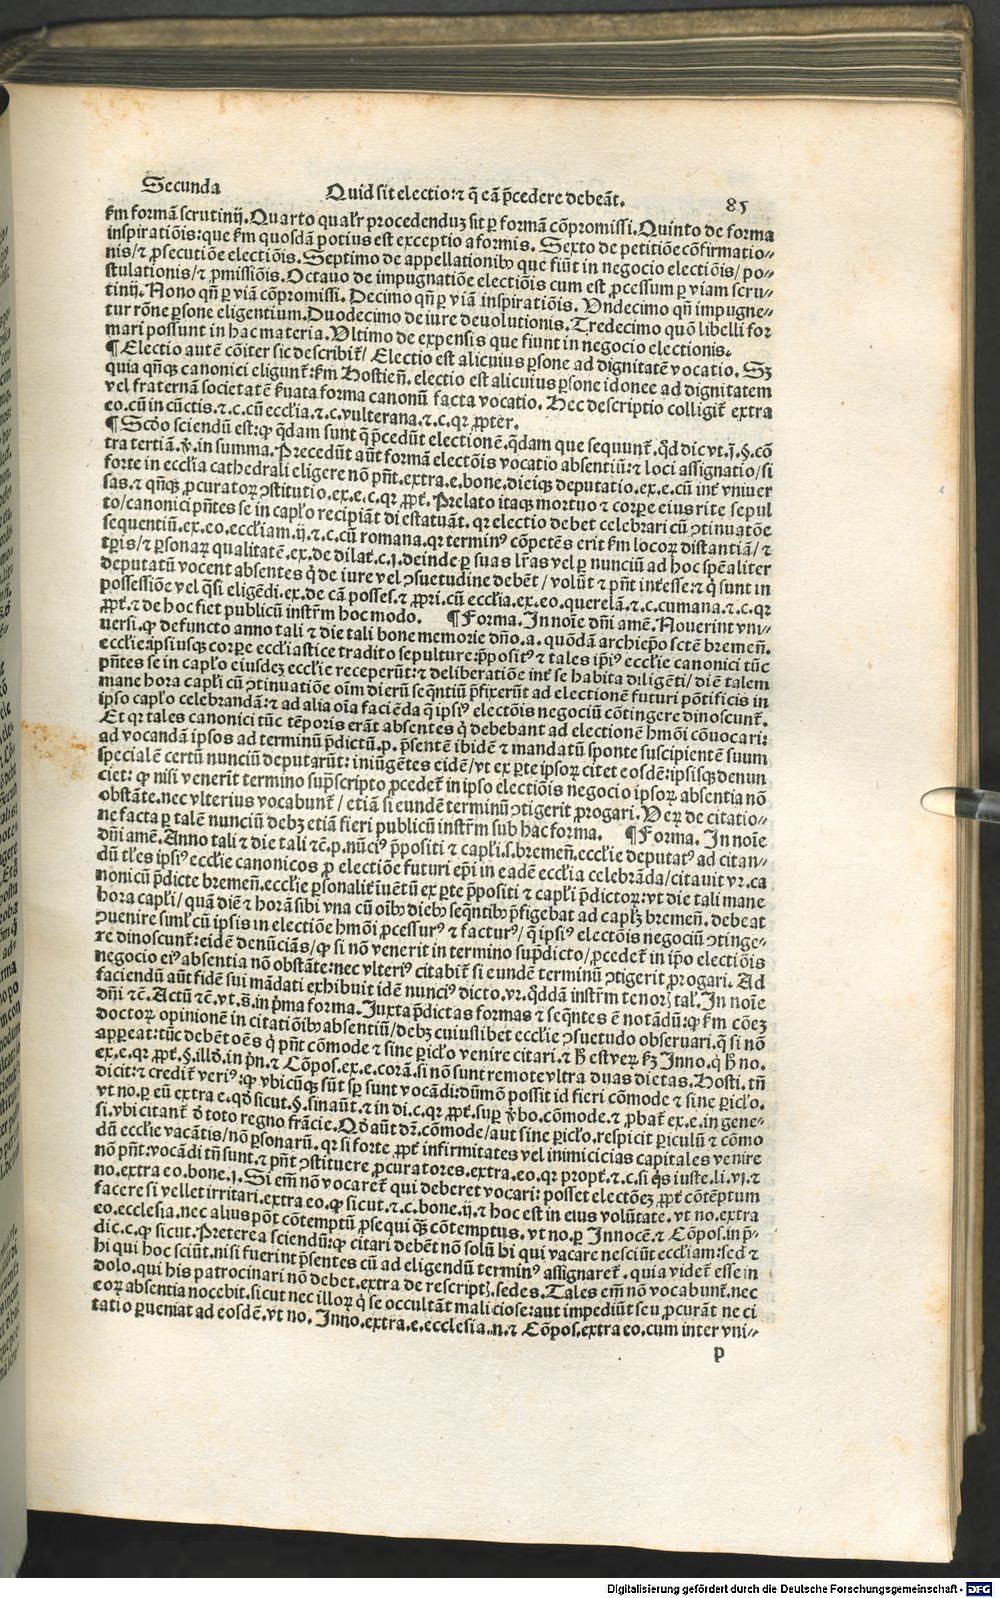 Secunda Quid sit electio:⁊ q̄ eā p̄cedere debeāt. 85
ẜm formā scrutinij. Quarto qualr̄ procedenduʒ sit ꝑ formā cōpromissi. Quinto de forma
inspiratiōis: que ẜm quosdā potius est exceptio a formis. Sexto de petitiōe cōfirmatio⸗
nis/⁊ ꝓsecutiōe electiōis. Septimo de appellationibꝰ que fiūt in negocio electiōis/ po⸗
stulationis/⁊ ꝑmissiōis. Octauo de impugnatiōe electiōis cum est ꝓcessum ꝑ viam scru⸗
tinij. Nono qn̄ ꝑ viā cōpromissi. Decimo qn̄ ꝑ viā inspiratiōis. Vndecimo qn̄ impugne⸗
tur rōne ꝑsone eligentium. Duodecimo de iure deuolutionis. Tredecimo quō libelli for
mari possunt in hac materia. Vltimo de expensis que fiunt in negocio electionis.
¶ Electio autē cōiter sic describit̄/ Electio est alicuius ꝑsone ad dignitatē vocatio. Sʒ
quia qn̄qꝫ canonici eligunt̄: ẜm Hostien̄. electio est alicuius ꝑsone idonee ad dignitatem
vel fraternā societatē ẜuata forma canonū facta vocatio. Hec descriptio colligit̄ extra
eo. cū in cūctis. ⁊. c. cū eccl̄ia. ⁊. c. vulterana. ⁊. c. qꝛ ꝓpter.
¶ Scd̄o sciendū est: ꝙ q̄dam sunt q̄ p̄cedūt electionē. q̄dam que sequunt̄. q̄d dic vt. j. §. cō
tra tertiā. ꝟ. in summa. Precedūt aūt formā electōis vocatio absentiū: ⁊ loci assignatio/ si
forte in eccl̄ia cathedrali eligere nō pn̄t. extra. e. bone. dieiqꝫ deputatio. ex. e. cū int̄ vniuer
sas. ⁊ qn̄qꝫ ꝓcuratoꝝ ꝯstitutio. ex. e. c. qꝛ ꝓpt̄. Prelato itaqꝫ mortuo ⁊ corꝑe eius rite sepul
to/ canonici pn̄tes se in capl̄o recipiāt di estatuāt. qꝛ electio debet celebrari cū ꝯtinuatōe
sequentiū. ex. eo. eccl̄iam. ij. ⁊. c. cū romana. qꝛ terminꝰ cōpetēs erit ẜm locoꝝ distantiā/ ⁊
tꝑis/ ⁊ ꝑsonaꝝ qualitatē. ex. de dilat̄. c. j. deinde ꝑ suas lr̄as vel ꝑ nunciū ad hoc spēaliter
deputatū vocent absentes q̄ de iure vel ꝯsuetudine debēt/ volūt ⁊ pn̄t int̄esse: ⁊ q̄ sunt in
possessiōe vel q̄si eligēdi. ex. de cā posses. ⁊ ꝓpri. cū eccl̄ia. ex. eo. querelā. ⁊. c. cumana. ⁊. c. qꝛ
ꝓpt̄. ⁊ de hoc fiet publicū instr̄m hoc modo. ¶ Forma. In noīe dn̄i amē. Nouerint vni⸗
uersi. ꝙ defuncto anno tali ⁊ die tali bone memorie dn̄o. a. quōdā archiep̄o sctē bremen̄.
eccl̄ie: ipsiusqꝫ corꝑe eccl̄iastice tradito sepulture: p̄positꝰ ⁊ tales ip̄iꝰ eccl̄ie canonici tūc
pn̄tes se in capl̄o eiusdeʒ eccl̄ie receperūt: ⁊ deliberatiōe int̄ se habita diligēti/ diē talem
mane hora capl̄i cū ꝯtinuatiōe oīm dierū seq̄ntiū p̄fixerūt ad electionē futuri pōtificis in
ipso capl̄o celebrandā: ⁊ ad alia oīa faciēda q̄ ipsiꝰ electōis negociū cōtingere dinoscunt̄.
Et qꝛ tales canonici tūc tēporis erāt absentes q̄ debebant ad electionē hm̄oi cōuocari:
ad vocandā ipsos ad terminū p̄dictū. p. p̄sentē ibidē ⁊ mandatū sponte suscipientē suum
specialē certū nunciū deputarūt: iniūgētes eidē/ vt ex ꝑte ipsoꝝ citet eosdē: ipsisqꝫ denun
ciet: ꝙ nisi venerit termino sup̄scripto ꝓcedet̄ in ipso electiōis negocio ipsoꝝ absentia nō
obstāte. nec vlterius vocabunt̄/ etiā si eundē terminū ꝯtigerit ꝓrogari. Veꝝ de citatio⸗
ne facta ꝑ talē nunciū debʒ etiā fieri publicū instr̄m sub hac forma. ¶ Forma. In noīe
dn̄i amē. Anno tali ⁊ die tali ⁊c̄. p. nūciꝰ p̄positi ⁊ capl̄i. s. bremen̄. eccl̄ie deputatꝰ ad citan⸗
dū tl̄es ipsiꝰ eccl̄ie canonicos ꝓ electiōe futuri ep̄i in eadē eccl̄ia celebrāda/ citauit vꝛ. ca
nonicū p̄dicte bremen̄. eccl̄ie ꝑsonalit̄ īuētū ex ꝑte p̄positi ⁊ capl̄i p̄dictoꝝ: vt die tali mane
hora capl̄i/ quā diē ⁊ horā sibi vna cū oībꝰ diebꝰ seq̄ntibꝰ p̄figebat ad capl̄ʒ bremen̄. debeat
ꝯuenire siml̄ cū ipsis in electiōe hm̄oi ꝓcessurꝰ ⁊ facturꝰ/ q̄ ipsiꝰ electōis negociū ꝯtinge⸗
re dinoscunt̄: eidē denūciās/ ꝙ si nō venerit in termino sup̄dicto/ ꝓcedet̄ in ip̄o electiōis
negocio eiꝰ absentia nō obstāte: nec vlteriꝰ citabit̄ si eundē terminū ꝯtigerit ꝓrogari. Ad
faciendū aūt fidē sui mādati exhibuit idē nunciꝰ dicto. vꝛ. q̄ddā instr̄m tenorꝭ tal̄. In noīe
dn̄i ⁊c̄. Actū ⁊c̄. vt. s̄. in p̄ma forma. Juxta p̄dictas formas ⁊ seq̄ntes ē notādū: ꝙ ẜm cōeʒ
doctoꝝ opinionē in citatiōibꝰ absentiū/ debʒ cuiuslibet eccl̄ie ꝯsuetudo obseruari. q̄ si nō
apꝑeat: tūc debēt oēs q̄ pn̄t cōmode ⁊ sine ꝑicl̄o venire citari. ⁊ h̄ est veꝝ ẜʒ Inno. q̄ h̄ no.
ex. e. qꝛ ꝓpt̄. §. illd̄. in pn̄. ⁊ Cōpos. ex. e. corā. si nō sunt remote vltra duas dietas. Hosti. tn̄
dicit: ⁊ credit̄ veriꝰ: ꝙ vbicūqꝫ sūt sꝑ sunt vocādi: dūmō possit id fieri cōmode ⁊ sine ꝑicl̄o.
vt no. ꝑ eū extra e. qd̄ sicut. §. sin aūt. ⁊ in di. c. qꝛ ꝓpt̄. suꝑ ꝟbo. cōmode. ⁊ ꝓbat̄ ex. e. in gene⸗
si. vbi citant̄ d̄ toto regno frācie. Qd̄ aūt dr̄. cōmode/ aut sine ꝑicl̄o. respicit ꝑiculū ⁊ cōmo
dū eccl̄ie vacātis/ nō ꝑsonarū. qꝛ si forte ꝓpt̄ infirmitates vel inimicicias capitales venire
nō pn̄t: vocādi tn̄ sunt. ⁊ pn̄t ꝯstituere ꝓcuratores. extra. eo. qꝛ propt̄. ⁊. c. si q̄s iuste. li. vj. ⁊
no. extra eo. bone. j. Si em̄ nō vocaret̄ qui deberet vocari: posset electōeʒ ꝓpt̄ cōtēptum
facere si vellet irritari. extra eo. ꝙ sicut. ⁊. c. bone. ij. ⁊ hoc est in eius volūtate. vt no. extra
eo. ecclesia. nec alius pōt cōtemptū ꝓsequi qꝫ cōtemptus. vt no. ꝑ Innocē. ⁊ Cōpos. in p̄⸗
dic. c. ꝙ sicut. Preterea sciendū: ꝙ citari debēt nō solū hi qui vacare nesciūt eccl̄iam: sed ⁊
hi qui hoc sciūt. nisi fuerint p̄sentes cū ad eligendū terminꝰ assignaret̄. quia videt̄ esse in
dolo. qui his patrocinari nō debet. extra de rescriptꝭ. sedes. Tales em̄ nō vocabunt̄. nec
eoꝝ absentia nocebit. sicut nec illoꝝ q̄ se occultāt maliciose: aut impediūt seu ꝓcurāt ne ci
tatio ꝑueniat ad eosdē. vt no. Inno. extra. e. ecclesia. n. ⁊ Cōpos. extra eo. cum inter vni⸗
p
Digitalisierung gefördert durch die Deutsche Forschungsgemeinschaft - DFG